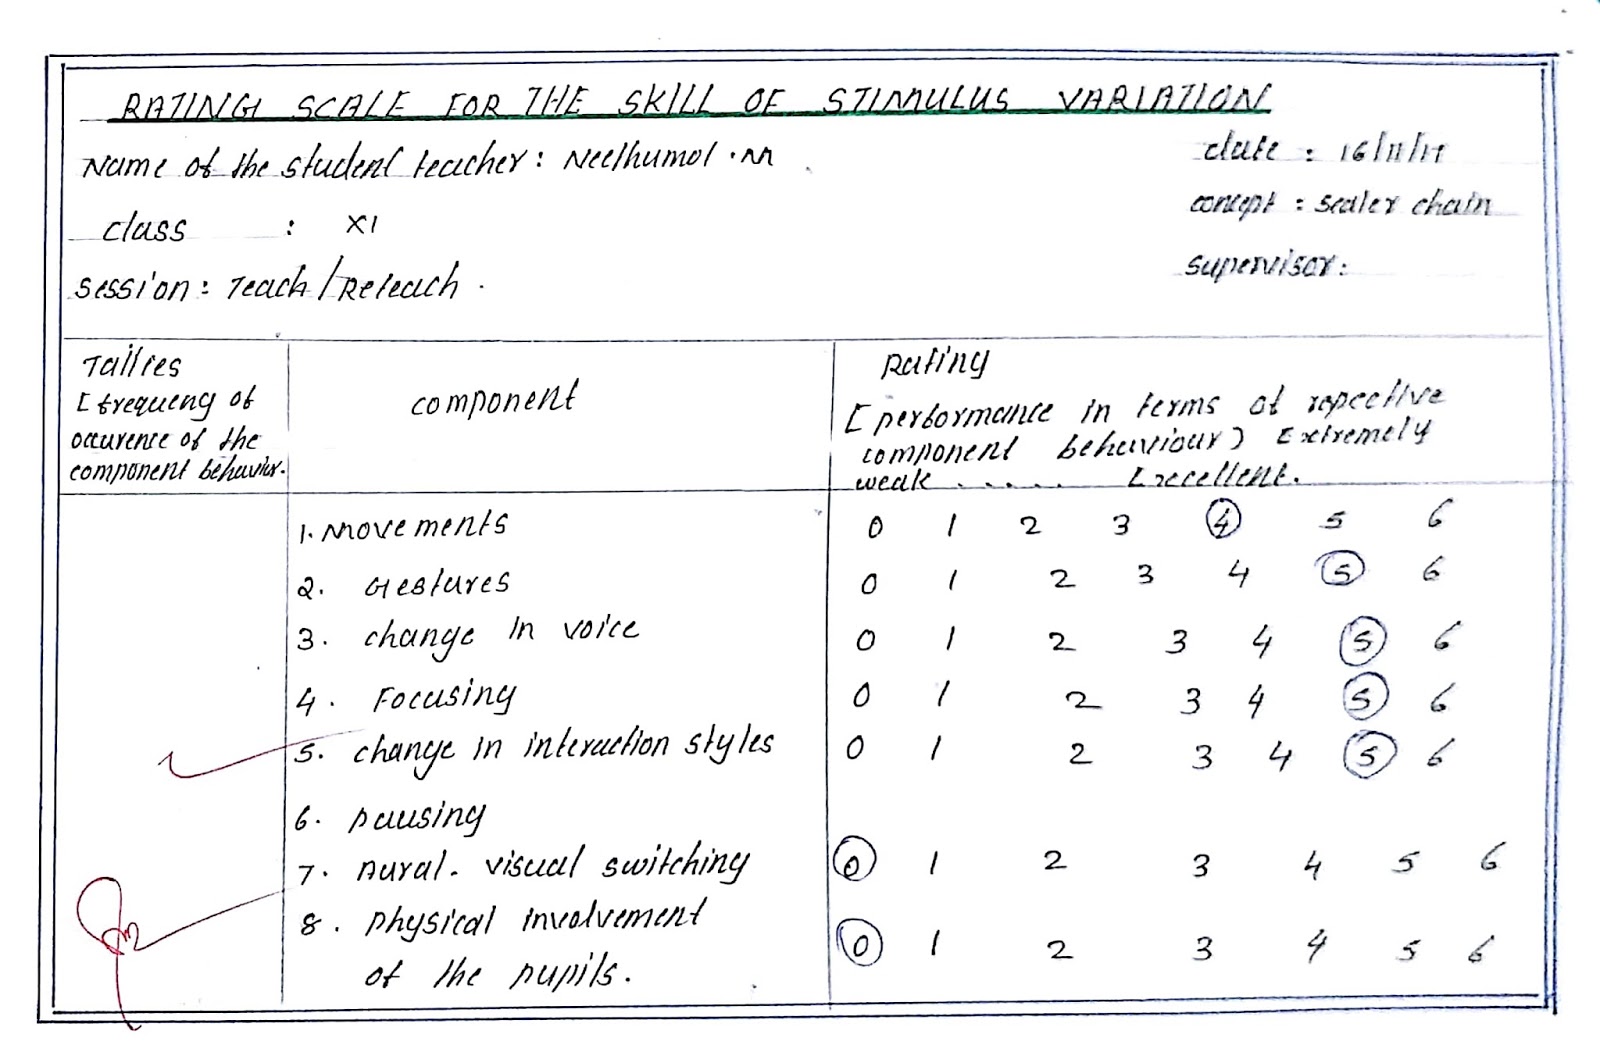 RATING SCALE FOR THE SKILL OF STIMULUS VARIATION
Name of the student teacher : Neethumol . M
date : 16/11/17
class : XI
concept : scaler chain
session : Teach / Reteach .
supervisor :
Tallies
[ frequency of
occurence of the
component behavior.
component
Rating
[ performance in terms of repective
component behaviour) Extremely
weak . . . . . Excellent.
1. Movements 0 1 2 3 4 5 6
2. Gestures 0 1 2 3 4 5 6
3. change in voice 0 1 2 3 4 5 6
4. Focusing 0 1 2 3 4 5 6
5. change in interaction styles 0 1 2 3 4 5 6
6. pausing
7. Aural - visual switching 0 1 2 3 4 5 6
8. physical involvement
of the pupils. 0 1 2 3 4 5 6